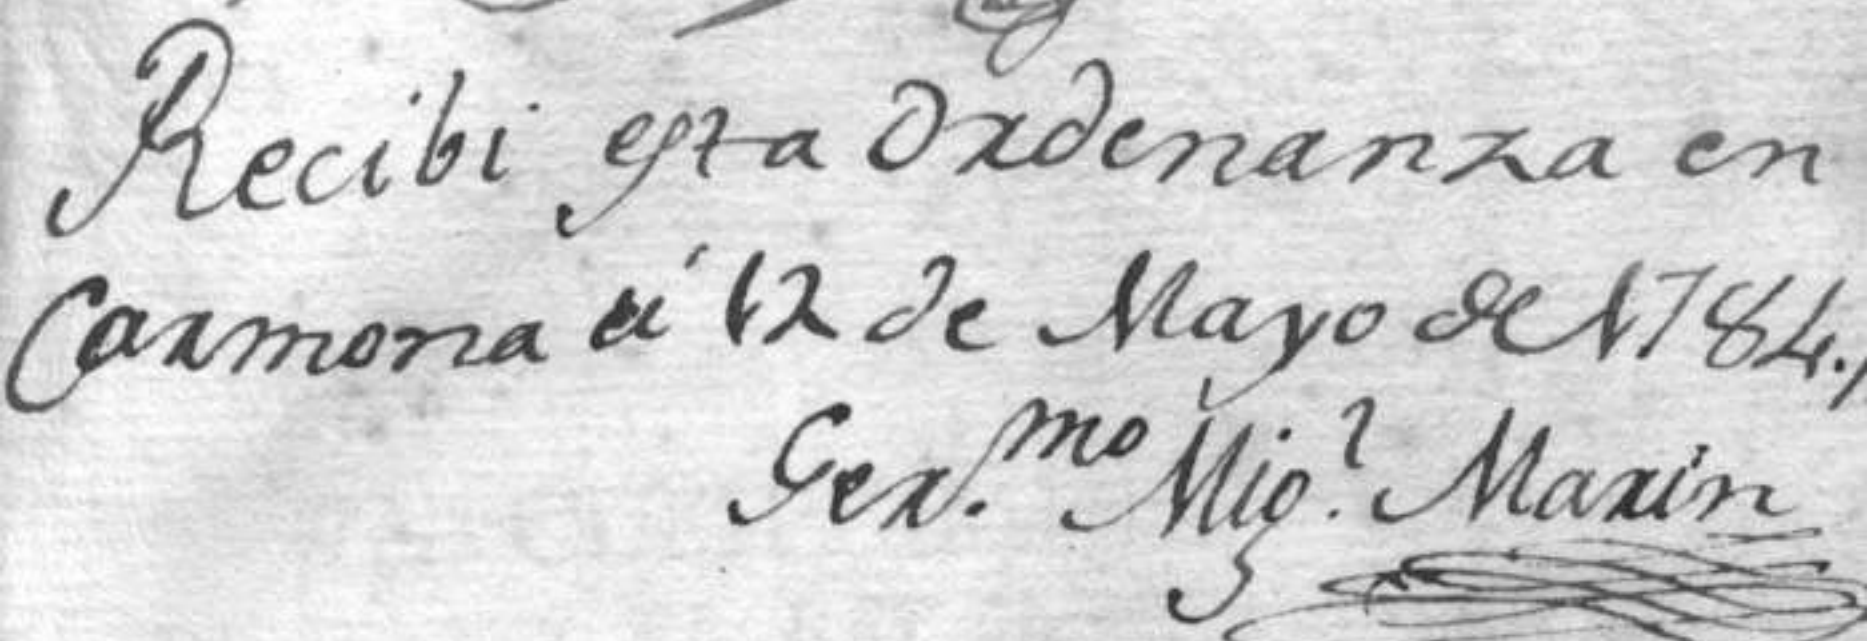 Recibi esta Ordenanza en
Carmona á 12 de Mayo de 1784.,
Ger.mo Mig.l Marin